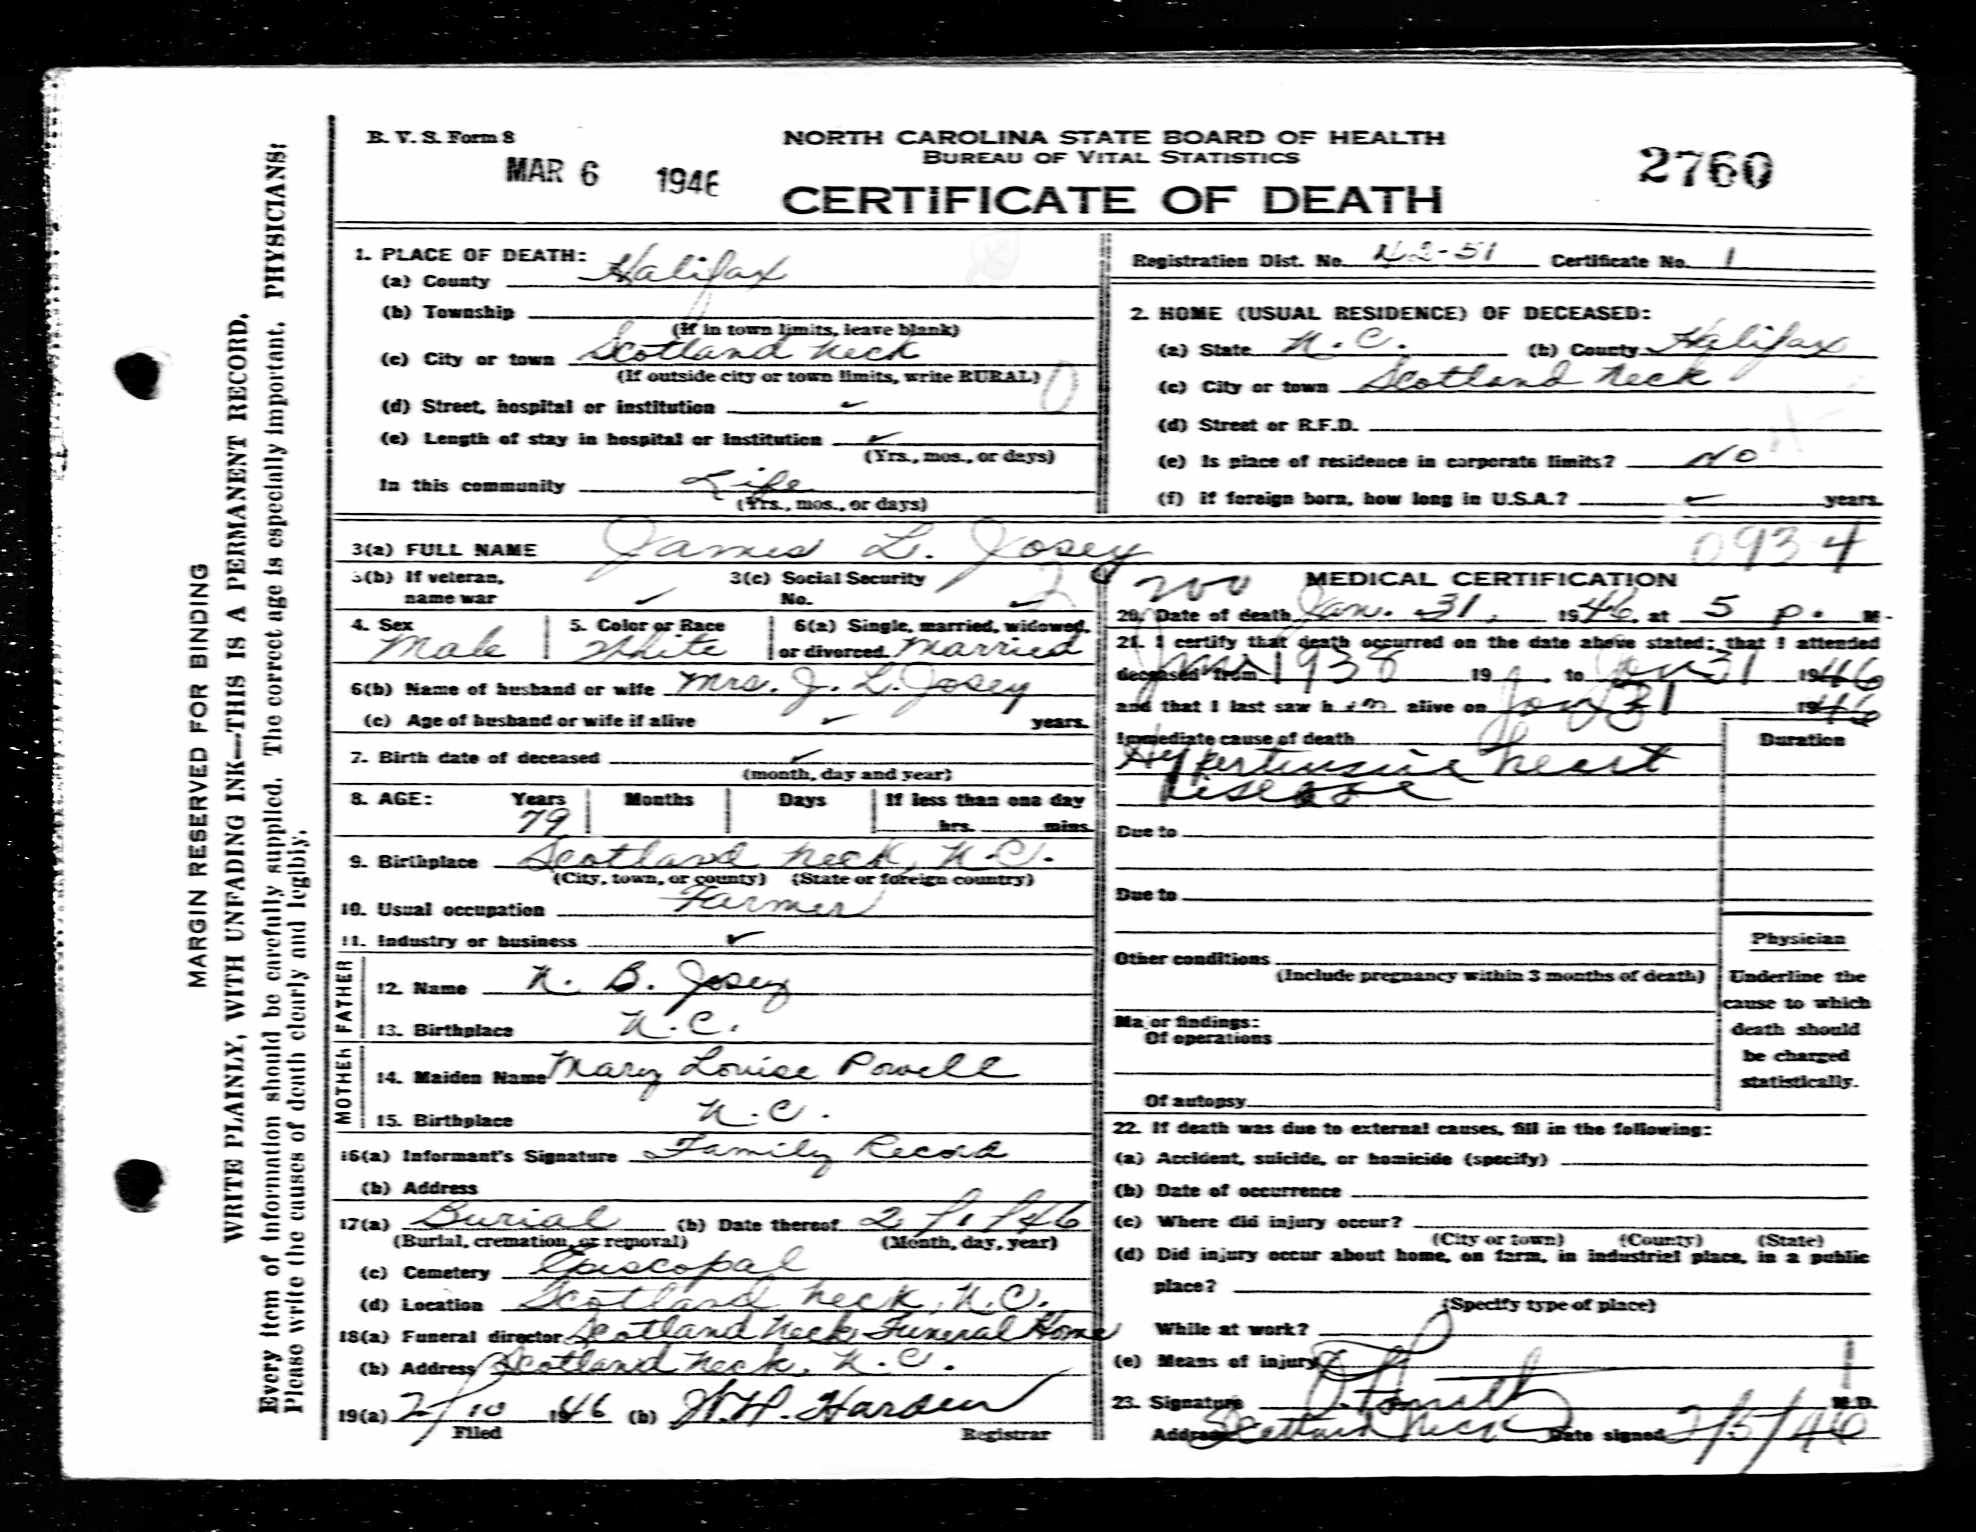 B. V. S. Form 8
MAR 6 1946
NORTH CAROLINA STATE BOARD OF HEALTH
BUREAU OF VITAL STATISTICS
CERTIFICATE OF DEATH
2760
MARGIN RESERVED FOR BINDING
WRITE PLAINLY, WITH UNFADING INK—THIS IS A PERMANENT RECORD.
Every item of information should be carefully supplied. The correct age is especially important. PHYSICIANS:
Please write the causes of death clearly and legibly.
1. PLACE OF DEATH:
(a) County Halifax
(b) Township
(If in town limits, leave blank)
(c) City or town Scotland Neck
(If outside city or town limits, write RURAL)
(d) Street, hospital or institution ✓
(e) Length of stay in hospital or institution ✓
(Yrs., mos., or days)
In this community Life
(Yrs., mos., or days)
Registration Dist. No. 42-51 Certificate No. 1
2. HOME (USUAL RESIDENCE) OF DECEASED:
(a) State N.C. (b) County Halifax
(c) City or town Scotland Neck
(d) Street or R.F.D.
(e) Is place of residence in corporate limits? No
(f) If foreign born, how long in U.S.A.? ✓ years.
3(a) FULL NAME James L. Josey
0934
3(b) If veteran, name war ✓
3(c) Social Security No. ✓
4. Sex Male
5. Color or Race White
6(a) Single, married, widowed, or divorced. Married
6(b) Name of husband or wife Mrs. J. L. Josey
(c) Age of husband or wife if alive ✓ years.
7. Birth date of deceased ✓
(month, day and year)
8. AGE: Years 79 Months Days If less than one day hrs. mins.
9. Birthplace Scotland Neck, N.C.
(City, town, or county) (State or foreign country)
10. Usual occupation Farmer
11. Industry or business ✓
FATHER
12. Name N. B. Josey
13. Birthplace N.C.
MOTHER
14. Maiden Name Mary Louise Powell
15. Birthplace N.C.
16(a) Informant's Signature Family Record
(b) Address
17(a) Burial (b) Date thereof 2/1/46
(Burial, cremation, or removal) (Month, day, year)
(c) Cemetery Episcopal
(d) Location Scotland Neck, N.C.
18(a) Funeral director Scotland Neck Funeral Home
(b) Address Scotland Neck, N.C.
19(a) 2/10 1946 (b) W.H. Harden
Filed Registrar
MEDICAL CERTIFICATION
20. Date of death Jan. 31, 1946, at 5 p. M.
21. I certify that death occurred on the date above stated; that I attended
deceased from 1938 19 , to Jan 31 1946
and that I last saw him alive on Jan 31 1946
Immediate cause of death Duration
Hypertensive heart
Disease
Due to
Due to
Other conditions
(Include pregnancy within 3 months of death)
Major findings:
Of operations
Of autopsy
Physician
Underline the
cause to which
death should
be charged
statistically.
22. If death was due to external causes, fill in the following:
(a) Accident, suicide, or homicide (specify)
(b) Date of occurrence
(c) Where did injury occur?
(City or town) (County) (State)
(d) Did injury occur about home, on farm, in industrial place, in a public
place?
(Specify type of place)
While at work?
(e) Means of injury
23. Signature M.D.
Address Scotland Neck Date signed 2/5/46